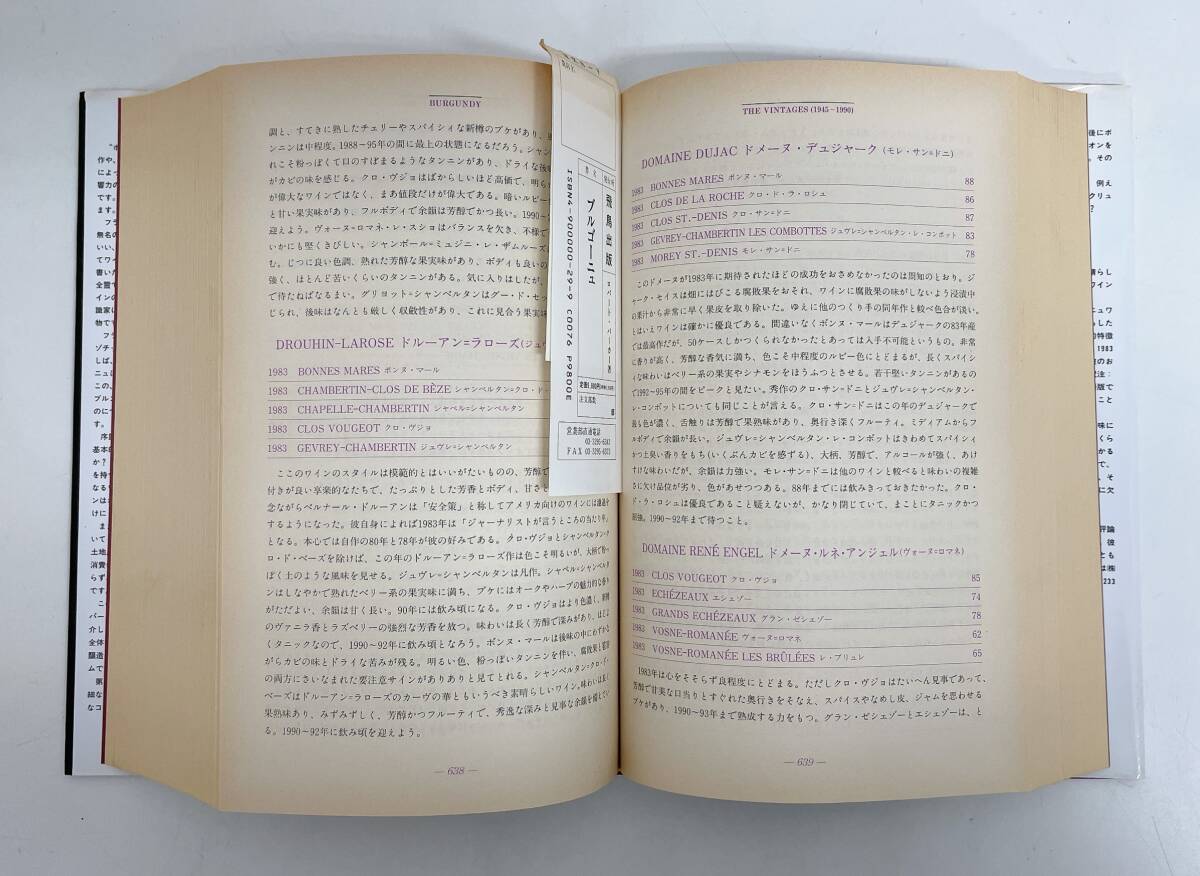 BURGUNDY
調と、すてきに熟したチェリーやスパイシィな新樽のブケがあり、
ンニンは中程度。1988-95年の間に最上の状態になるだろう。シャン
れこそ粉っぽくて口のすぼまるようなタンニンがあり、ドライな後味
がカビの味を感じる。クロ・ヴジョはばからしいほど高価で、明らか
が偉大なワインではなく、まあ値段だけが偉大である。暗いルビー
と甘い果実味があり、フルボディで余韻は芳醇でかつ長い。1990~
迎えよう。ヴォーヌ=ロマネ・レ・スショはバランスを欠き、不様で
いかにも堅くきびしい。シャンボール=ミュジニ・レ・ザムルーズ
む。じつに良い色調、熟れた芳醇な果実味があり、ボディも良いの
強く、ほとんど苦いくらいのタンニンがある。気に入りはしたが、
で待たねばなるまい。グリヨット=シャンベルタンはグー・ド・セッ
じられ、後味はなんとも厳しく収斂性があり、これに見合う果実味
DROUHIN-LAROSE ドルーアン=ラローズ(ジュヴ
1983 BONNES MARES ボンヌ・マール
1983 CHAMBERTIN-CLOS DE BÈZE シャンベルタン=クロ・ド・
1983 CHAPELLE-CHAMBERTIN シャペル=シャンベルタン
1983 CLOS VOUGEOT クロ・ヴジョ
1983 GEVREY-CHAMBERTIN ジュヴレ=シャンベルタン
ここのワインのスタイルは模範的とはいいがたいものの、芳醇で
付きが良い享楽的なたちで、たっぷりとした芳香とボディ、甘さ
念ながらベルナール・ドルーアンは「安全策」と称してアメリカ向けのワインには濾過を
するようになった。彼自身によれば1983年は「ジャーナリストが言うところの当たり年」
となる。本心では自作の80年と78年が彼の好みである。クロ・ヴジョとシャンベルタン・ク
ロ・ド・ベーズを除けば、この年のドルーアン=ラローズ作は色こそ明るいが、大柄で粉っ
ぽく土のような風味を見せる。ジュヴレ=シャンベルタンは凡作。シャペル=シャンベルタ
ンはしなやかで熟れたベリー系の果実味に満ち、ブケにはオークやハーブの魅力的な香り
がただよい、余韻は甘く長い。90年には飲み頃になる。クロ・ヴジョはより色濃く、新樽
のヴァニラ香とラズベリーの強烈な芳香を放つ。味わいは長く芳醇で深みがあり、ほどよ
くタニックなので、1990~92年に飲み頃となろう。ボンヌ・マールは後味の中にわずかな
がらカビの味とドライな苦みが残る。明るい色、粉っぽいタンニンを伴い、腐敗果と雹害
の両方にさいなまれた要注意サインがありありと見てとれる。シャンベルタン=クロ・ド・
ベーズはドルーアン=ラローズのカーヴの華ともいうべき素晴らしいワイン。味わいは長く
果熟味あり、みずみずしく、芳醇かつフルーティで、秀逸な深みと見事な余韻を備えてい
る。1990~92年に飲み頃を迎えよう。
— 638 —
飛鳥出版
ブルゴーニュ
ロバート・パーカー著
定価9,800円
注文部数
部
営業部直通電話
FAX
ISBN4-900000-29-9 C0076 P9800E
THE VINTAGES (1945~1990)
DOMAINE DUJAC ドメーヌ・デュジャーク (モレ・サン=ドニ)
1983 BONNES MARES ボンヌ・マール 88
1983 CLOS DE LA ROCHE クロ・ド・ラ・ロシュ 86
1983 CLOS ST.-DENIS クロ・サン=ドニ 87
1983 GEVREY-CHAMBERTIN LES COMBOTTES ジュヴレ=シャンベルタン・レ・コンボット 83
1983 MOREY ST.-DENIS モレ・サン=ドニ 78
このドメーヌが1983年に期待されたほどの成功をおさめなかったのは周知のとおり。ジ
ャーク・セイスは畑にはびこる腐敗果をおそれ、ワインに腐敗果の味がしないよう浸漬中
の果汁から非常に早く果皮を取り除いた。ゆえに他のつくり手の同年作と較べ色合が淡い。
とはいえワインは確かに優良である。間違いなくボンヌ・マールはデュジャークの83年産
では最高作だが、50ケースしかつくられなかったとあっては入手不可能というもの。非常
に香りが高く、芳醇な香気に満ち、色こそ中程度のルビー色にとどまるが、長くスパイシ
ィな味わいはベリー系の果実やシナモンをほうふつとさせる。若干堅いタンニンがあるの
で1992~95年の間をピークと見たい。秀作のクロ・サン=ドニとジュヴレ=シャンベルタン・
レ・コンボットについても同じことが言える。クロ・サン=ドニはこの年のデュジャークで
最も色が濃く、舌触りは芳醇で果熟味があり、奥行き深くフルーティ。ミディアムからフ
ルボディで余韻が長い。ジュヴレ=シャンベルタン・レ・コンボットはきわめてスパイシィ
かつ土臭い香りをもち(いくぶんカビを感ずる)、大柄、芳醇で、アルコールが強く、あけ
すけな味わいだが、余韻は力強い。モレ・サン=ドニは他のワインと較べると味わいの複雑
さに欠け品位が劣り、色があせつつある。88年までには飲みきっておきたかった。クロ・
ド・ラ・ロシュは優良であること疑えないが、かなり閉じていて、まことにタニックかつ
屈強。1990~92年まで待つこと。
DOMAINE RENÉ ENGEL ドメーヌ・ルネ・アンジェル(ヴォーヌ=ロマネ)
1983 CLOS VOUGEOT クロ・ヴジョ 85
1983 ECHÉZEAUX エシェゾー 74
1983 GRANDS ECHÉZEAUX グラン・ゼシェゾー 78
1983 VOSNE-ROMANÉE ヴォーヌ=ロマネ 62
1983 VOSNE-ROMANÉE LES BRÛLÉES レ・ブリュレ 65
1983年は心をそそらず良程度にとどまる。ただしクロ・ヴジョはたいへん見事であって、
芳醇で甘美な口当りとすぐれた奥行きをそなえ、スパイスやなめし皮、ジャムを思わせる
ブケがあり、1990~93年まで熟成する力をもつ。グラン・ゼシェゾーとエシェゾーは、と
— 639 —